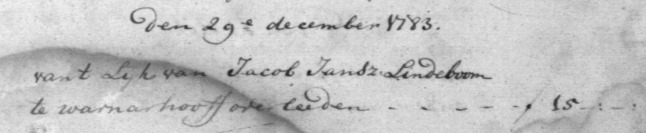 den 29e december 1783.
vant Lyk van Jacob Jansz Lindeboom
te warnarhooff overleeden - - - - - ƒ 15 -:-: